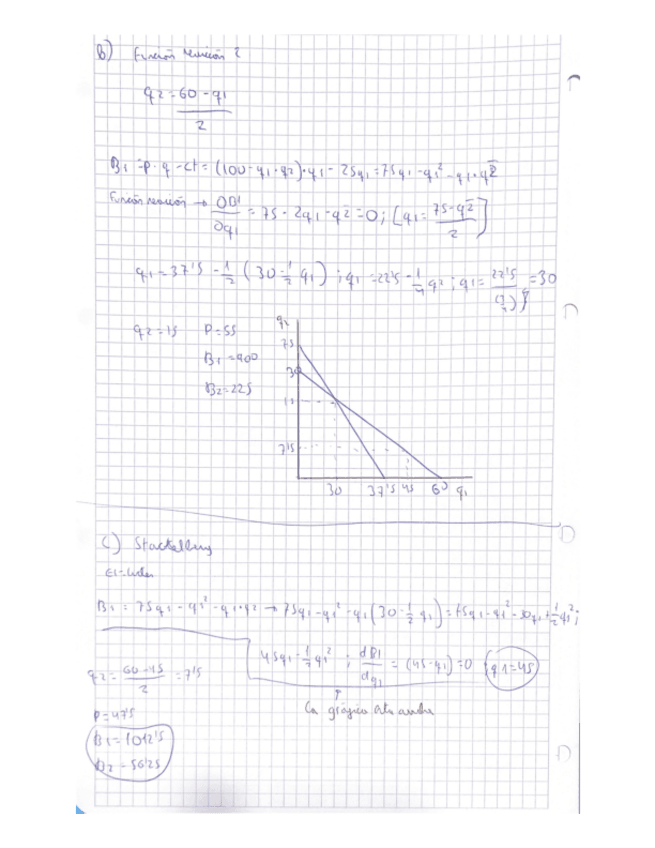 B) Función reacción 2
q2 = 60 - q1 / 2
B1 = P · q - ct = (100 - q1 - q2) · q1 - 25q1 = 75q1 - q1² - q1 · q2
Función reacción → ∂B1/∂q1 = 75 - 2q1 - q2 = 0; [q1 = 75 - q2 / 2]
q1 = 37'5 - 1/2 (30 - 1/2 q1); q1 = 22'5 - 1/4 q1; q1 = 22'5 / = 30
q2 = 15 P = 55
B1 = 900
B2 = 225
q2
75
30
15
7'5
30 37'5 45 60 q1
C) Stackelberg
E1 - Líder
B1 = 75q1 - q1² - q1 · q2 → 75q1 - q1² - q1 (30 - 1/2 q1) = 75q1 - q1² - 30q1 + 1/2 q1²;
45q1 - 1/2 q1²; dB1/dq1 = (45 - q1) = 0 q1 = 45
q2 = 60 - 45 / 2 = 7'5
La gráfica
P = 47'5
B1 = 1012'5
B2 = 56'25